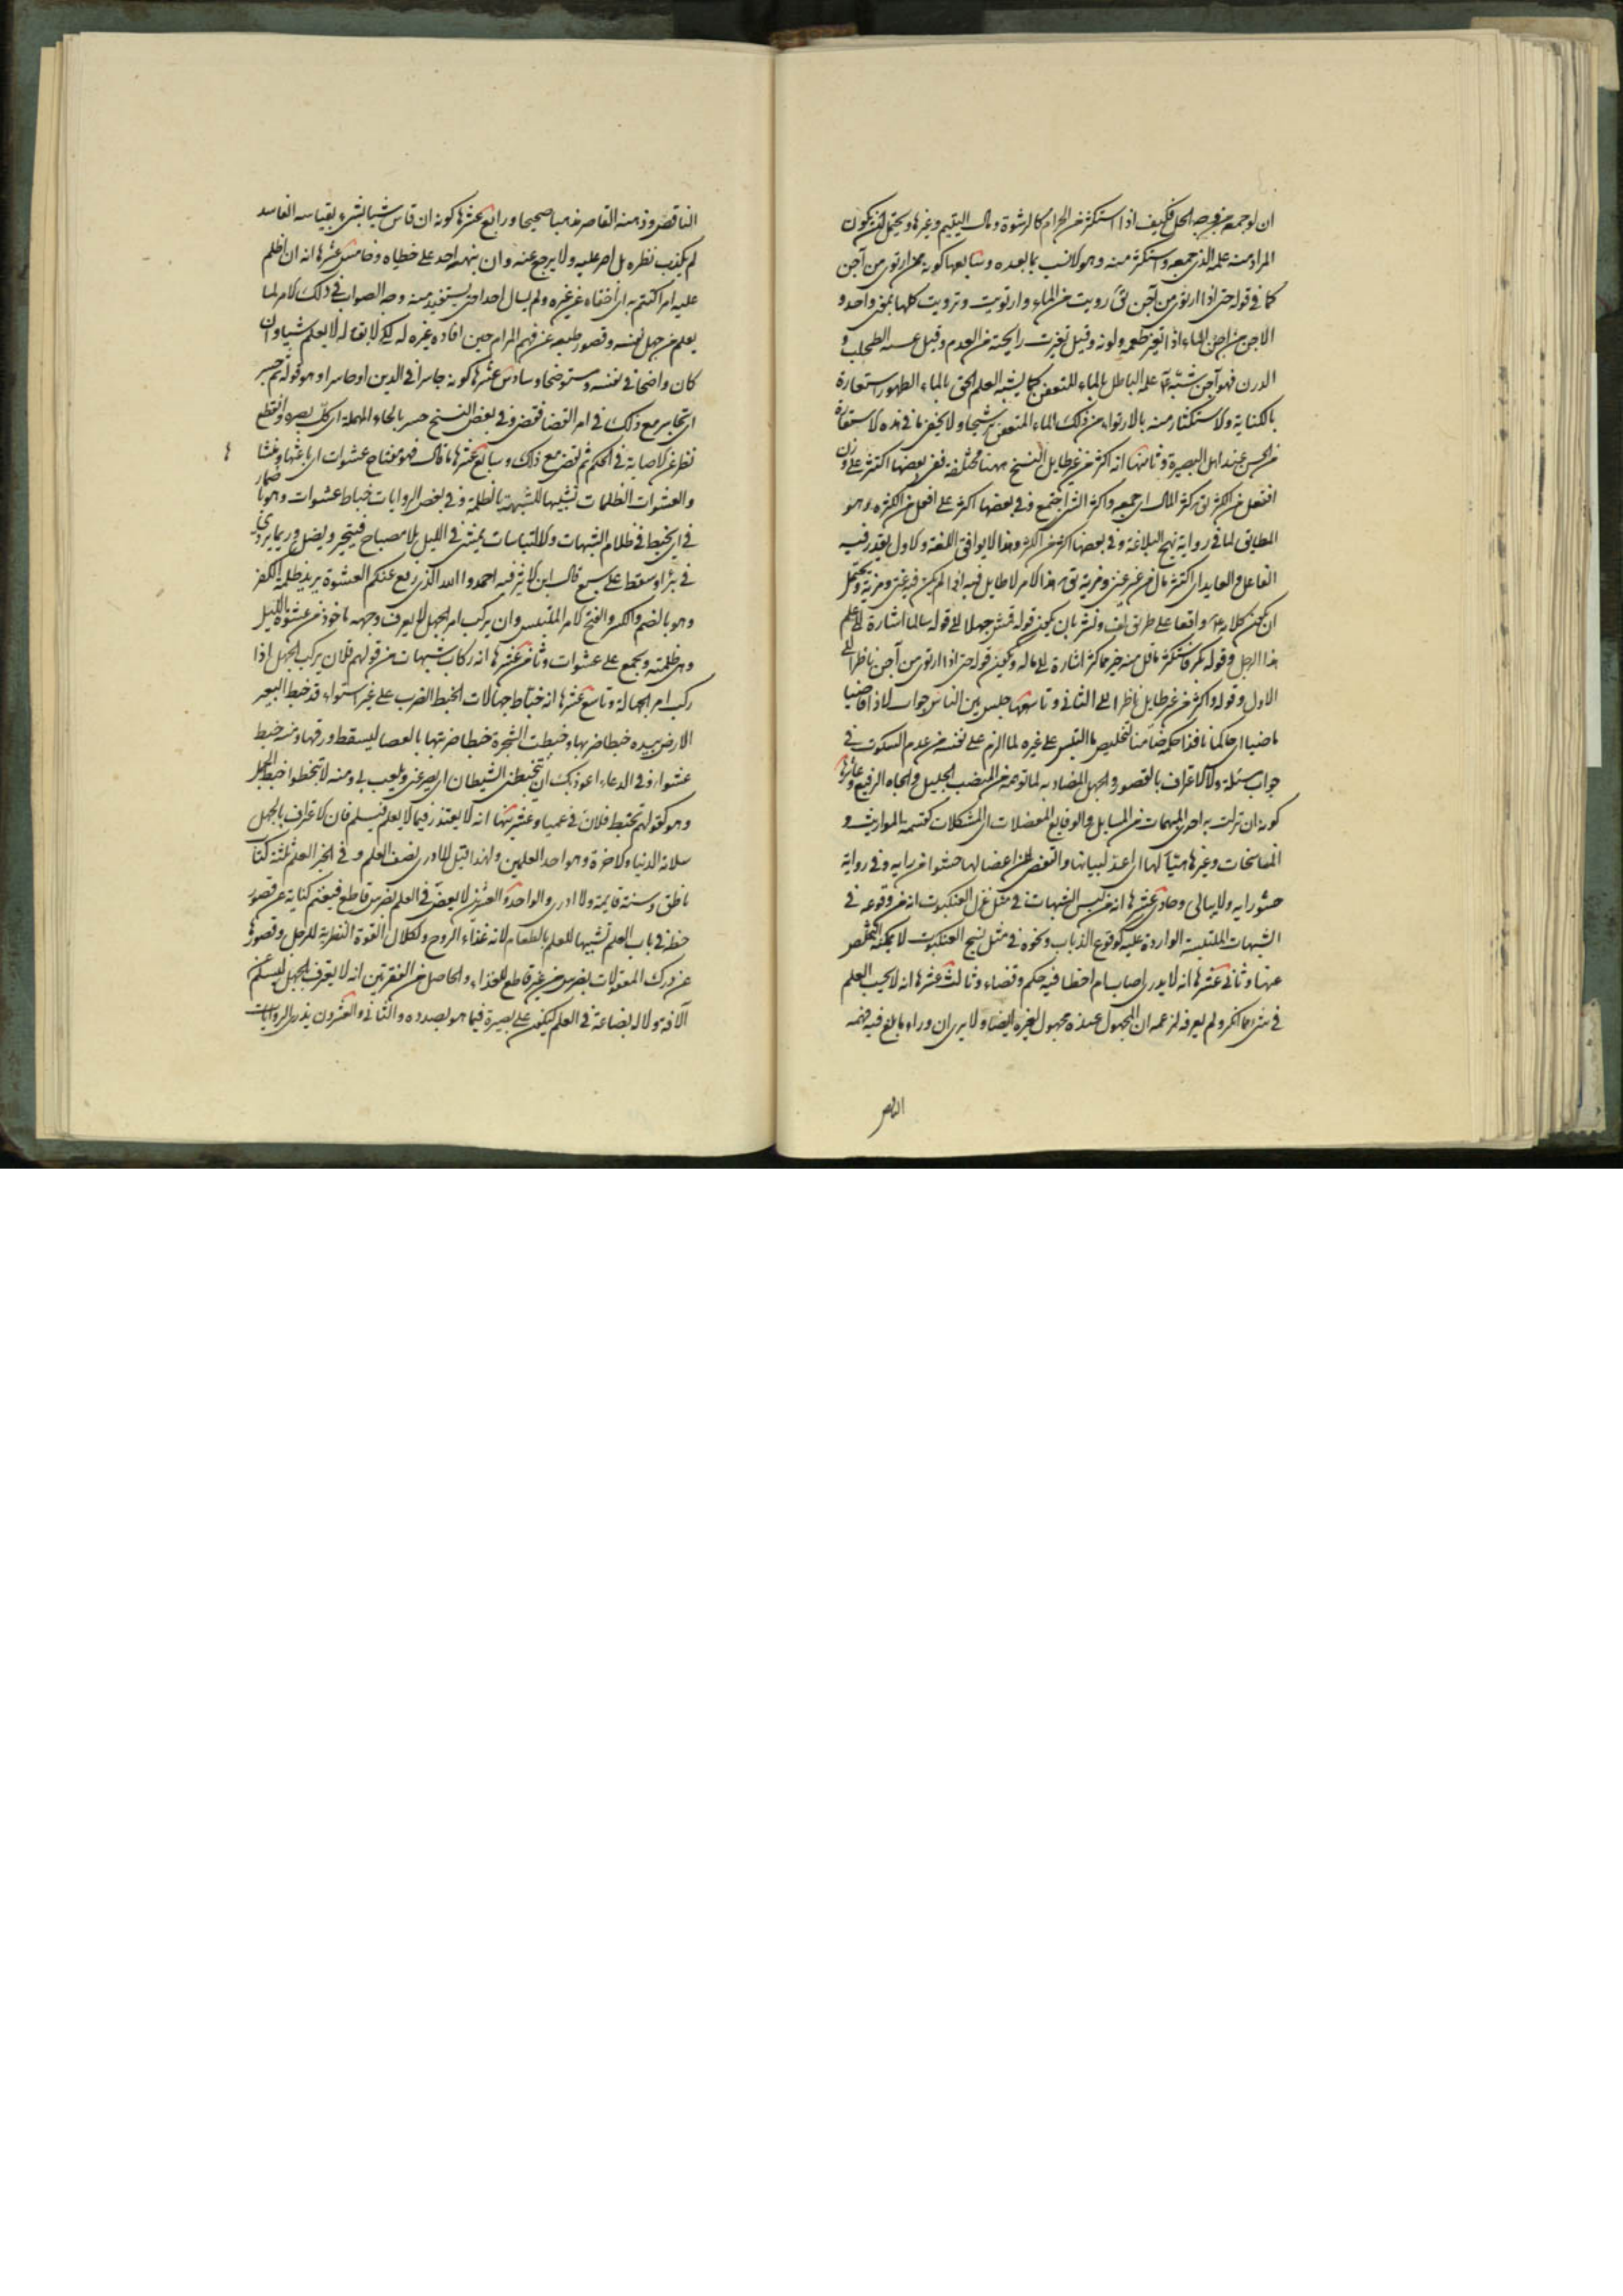 ان لو جمعه من وجه الحل فكيف اذا استكثر من الحرام كالرشوة ومال اليتيم وغيرها ويحتمل ان يكون
المراد منه علمه الذي جمعه واستكثر منه وهو الانسب بما بعده وسابعها كونه ممن ارتوى من آجن
كما في قوله حتى اذا ارتوى من آجن يق رويت من الماء وارتويت وترويت كلها بمعنى واحد و
الاجن من اجن الماء اذا تغير طعمه ولونه وقيل تغيرت رايحته من القدم وقيل غشيه الطحلب و
الدرن فهو آجن شبه علمه الباطل بالماء المتعفن كما يشبه العلم الحق بالماء الطهور استعارة
بالكناية والاستكثار منه بالارتواء من ذلك الماء المتعفن ترشيحا ولا يخفى ما في هذه الاستعارة
من الحسن عند اهل البصيرة وثامنها انه اكثر من غير طايل النسخ ههنا مختلفة ففي بعضها اكتنز على وزن
افتعل من الكنز يق كنز المال اي جمعه واكتنز الشي اجتمع وفي بعضها اكثر على افعل من الكثرة وهو
المطابق لما في رواية نهج البلاغة وفي بعضها اكنز من الكنز وهذا لا يوافق اللغة والاول يقدر فيه
الفاعل والعايد اي اكتنز مال من غير غنى ومزية يق هذا الامر لا طايل فيه اذا لم يكن فيه غنى ومزية ويحتمل
ان يكون كلامه واقعا على طريق لف ونشر بان يكون قوله قمش جهلا الى قوله سالما اشارة الى علم
هذا الرجل وقوله بكر فاستكثر ما قل منه خير مما كثر اشارة الى ماله ويكون قوله حتى اذا ارتوى من آجن ناظرا الى
الاول وقوله واكثر من غير طايل ناظرا الى الثاني وتاسعها جلس بين الناس جواب لاذا قاضيا
ماضيا اي حاكما نافذا حكمه ضامنا لتخليص ما التبس على غيره لما الزم على نفسه من عدم السكوت في
جواب مسئلة والاعتراف بالقصور والجهل المضاد به لما توهمه من المنصب الجليل والجاه الرفيع وعاشرها
كونه ان نزلت به احدى المبهمات من المسايل والوقايع المعضلات اي المشكلات كقسمة المواريث و
المناسخات وغيرها هيأ لها اي اعد لبيانها والتفصي من اعضالها حشوا من رايه وفي رواية
حشو رايه ولا يبالي وحادي عشرها انه من لبس الشبهات في مثل غزل العنكبوت انه من وقوعه في
الشبهات الملتبسة الواردة عليه كوقوع الذباب ونحوه في مثل نسج العنكبوت لا يمكنه التخلص
عنها وثاني عشرها انه لا يدري اصاب ام اخطا فيه حكم وقضاء وثالث عشرها انه لا يحسب العلم
في شيء مما انكر ولم يعرفه لزعمه ان المجهول عنده مجهول لغيره ايضا ولا يرى ان وراء ما بلغ فيه فهمه
الناقص
الناقص وذهنه القاصر مذهبا صحيحا ورابع عشرها كونه ان قاس شيئا بشيء بقياسه الفاسد
لم يكذب نظره بل اصر عليه ولا يرجع عنه وان ينبهه احد على خطاه وخامس عشرها انه ان اظلم
عليه امر اكتتم به اي اخفاه عن غيره ولم يسال احدا حتى يستفيد منه وجه الصواب في ذلك الامر لما
يعلم من جهل نفسه وقصور طبعه عن فهم المرام حين افاده غيره له لكي لا يقال له لا يعلم شيئا وان
كان واضحا في نفسه ومستوضحا وسادس عشرها كونه جاسرا في الدين او حاسرا وهو قوله ثم جسر
اي تجاسر مع ذلك في امر القضا فقضى وفي بعض النسخ حسر بالحاء المهملة اي كل بصره وانقطع
نظره عن الاصابة في الحكم ثم قضى مع ذلك وسابع عشرها ما قال فهو مفتاح عشوات اي باعثها ومنشا
والعشوات الظلمات تشبيها للشبهة بالظلمة وفي بعض الروايات خباط عشوات وهو ما
في اي يخبط في ظلام الشبهات والالتباسات كمن يمشي في الليل بلا مصباح فيتحير ويضل وربما يتردى
في بئر او سقط على سبع قال ابن الاثير فيه احمدوا الله الذي رفع عنكم العشوة يريد ظلمة الكفر
وهو بالضم والكسر والفتح الامر الملتبس وان يركب امرا بجهل لا يعرف وجهه ماخوذ من عشوة الليل
وهي ظلمته ويجمع على عشوات وثامن عشرها انه ركاب شبهات من قولهم فلان يركب الجهل اذا
ركب امر الجهالة وتاسع عشرها انه خباط جهالات الخبط الضرب على غير استواء قد خبط البعير
الارض بيده خبطا ضربها وخبطت الشجرة خبطا ضربتها بالعصا ليسقط ورقها ومنه خبط
عشواء وفي الدعاء اعوذ بك ان يتخبطني الشيطان اي يصرعني ويلعب بي ومنه لا تخبطوا خبط الجمل
وهو كقولهم تخبط فلان في عمياء وعشرينها انه لا يعتذر فيما لا يعلم فيسلم فان الاعتراف بالجهل
سلامة الدنيا والاخرة وهو احد العلمين ولهذا قيل لا ادري نصف العلم وفي الخبر العلم ثلثة كتاب
ناطق وسنة قايمة ولا ادري والواحد والعشرون لا يعض في العلم بضرس قاطع فيغنم كناية عن قصور
حظه في باب العلم تشبيها للعلم بالطعام لانه غذاء الروح ولكلال القوة النظرية للرجل وقصورها
عن درك المعقولات بضرس غير قاطع للغذاء والحاصل من الفقرتين انه لا يعترف بالجهل ليسلم عن
الآفة ولا له بضاعة في العلم ليكون على بصيرة فيما هو بصدده والثاني والعشرون يذري الروايات